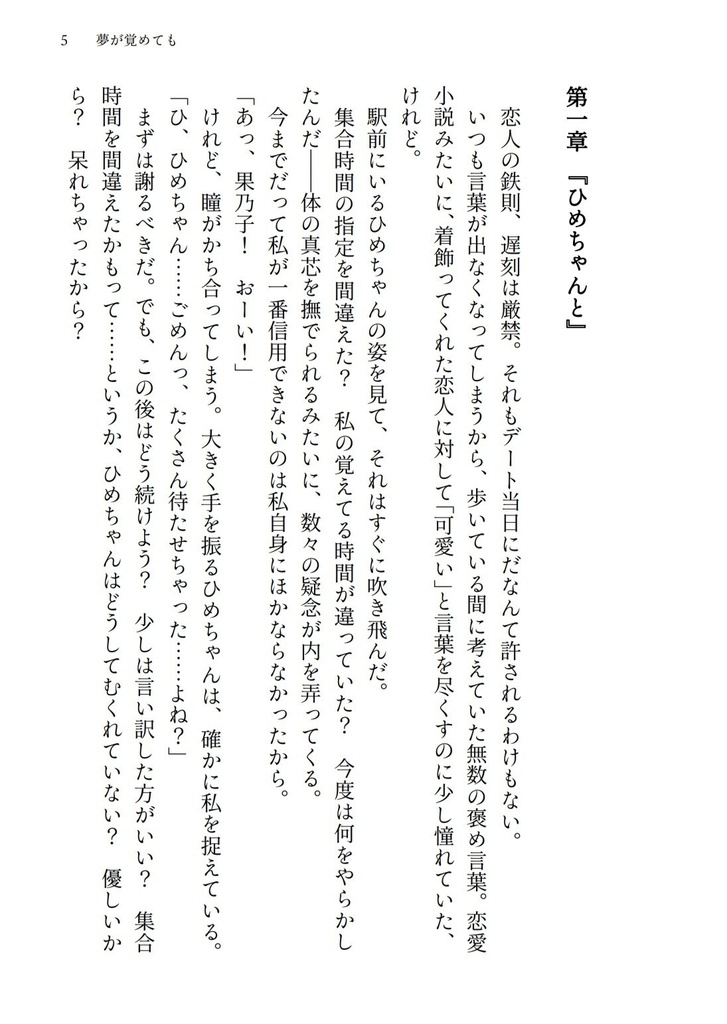 5 夢が覚めても
第一章 『ひめちゃんと』
恋人の鉄則、遅刻は厳禁。それもデート当日にだなんて許されるわけもない。
いつも言葉が出なくなってしまうから、歩いている間に考えていた無数の褒め言葉。恋愛
小説みたいに、着飾ってくれた恋人に対して「可愛い」と言葉を尽くすのに少し憧れていた、
けれど。
駅前にいるひめちゃんの姿を見て、それはすぐに吹き飛んだ。
集合時間の指定を間違えた? 私の覚えてる時間が違っていた? 今度は何をやらかし
たんだ――体の真芯を撫でられるみたいに、数々の疑念が内を弄ってくる。
今までだって私が一番信用できないのは私自身にほかならなかったから。
「あっ、果乃子! おーい!」
けれど、瞳がかち合ってしまう。大きく手を振るひめちゃんは、確かに私を捉えている。
「ひ、ひめちゃん……ごめんっ、たくさん待たせちゃった……よね?」
まずは謝るべきだ。でも、この後はどう続けよう? 少しは言い訳した方がいい? 集合
時間を間違えたかもって……というか、ひめちゃんはどうしてむくれていない? 優しいか
ら? 呆れちゃったから?